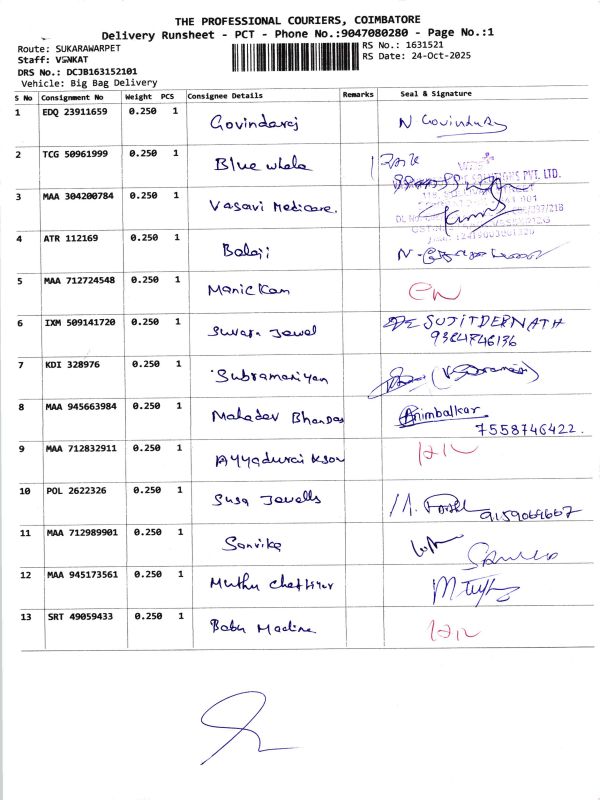 THE PROFESSIONAL COURIERS, COIMBATORE
Delivery Runsheet - PCT - Phone No.:9047080280 - Page No.:1
Route: SUKARAWARPET
RS No.: 1631521
Staff: VENKAT
RS Date: 24-Oct-2025
DRS No.: DCJB163152101
Vehicle: Big Bag Delivery
S No Consignment No Weight PCS Consignee Details Remarks Seal & Signature
1 EDQ 23911659 0.250 1 Govindaraj N Govinduraj
2 TCG 50961999 0.250 1 Blue whale
PVT. LTD.
3 MAA 304200784 0.250 1 Vasavi Medicare.
4 ATR 112169 0.250 1 Balaji
5 MAA 712724548 0.250 1 Manickam
6 IXM 509141720 0.250 1 Suvarn Jewel SUJITDERNATH
9364746136
7 KDI 328976 0.250 1 Subramaniyan
8 MAA 945663984 0.250 1 Mahadev Bhandas Animbalkar
7558746422.
9 MAA 712832911 0.250 1 Ayyadurai Ksou
10 POL 2622326 0.250 1 Susa Jewells 9159064667
11 MAA 712989901 0.250 1 Sanvika
12 MAA 945173561 0.250 1 Muthu Chettiyar
13 SRT 49059433 0.250 1 Babu Machine